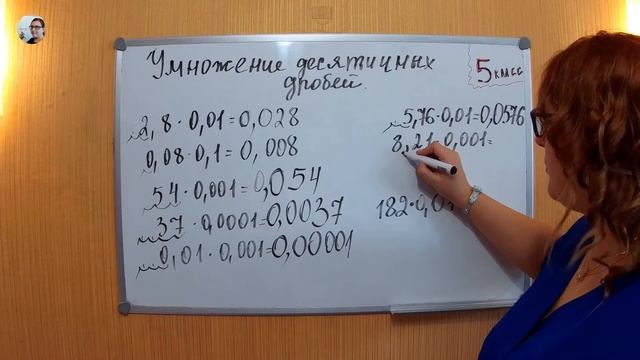 Умножение десятичных
дробей.
5 класс
2,8·0,01=0,028
0,08·0,1=0,008
54·0,001=0,054
37·0,0001=0,0037
0,01·0,001=0,00001
5,76·0,01=0,0576
8,21·0,001=
182·0,0